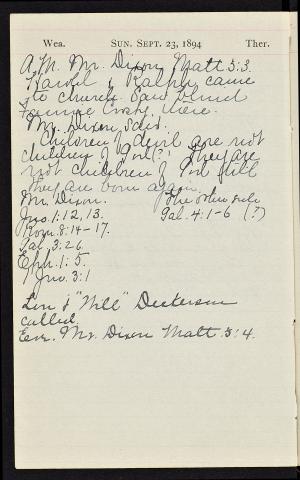 Wea. SUN. SEPT. 23, 1894 Ther.
A.M. Mr. Dixon Matt 5:3.
Harold & Ralph came
to church. Saw
Fannie there.
Mr. Dixon said.
"Children of devil are not
children of God (?) They are
not children of God till
they are born again.
Mr. Dixon. The other side
Jno. 1:12, 13. Gal. 4:1-6 (?)
Rom. 8:14-17.
Gal. 3:26.
Eph. 1:5.
1 Jno. 3:1
Lon & "Will" Dickerson
called.
Eve. Mr. Dixon Matt. 5:4.